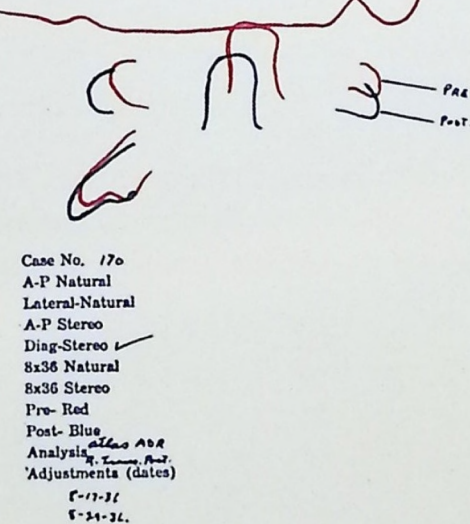 PRE
POST.
Case No. 170
A-P Natural
Lateral-Natural
A-P Stereo
Diag-Stereo ✓
8x36 Natural
8x36 Stereo
Pre- Red
Post- Blue
Analysis atlas ADR
R. Trans. Post.
Adjustments (dates)
5-17-36
5-29-36.